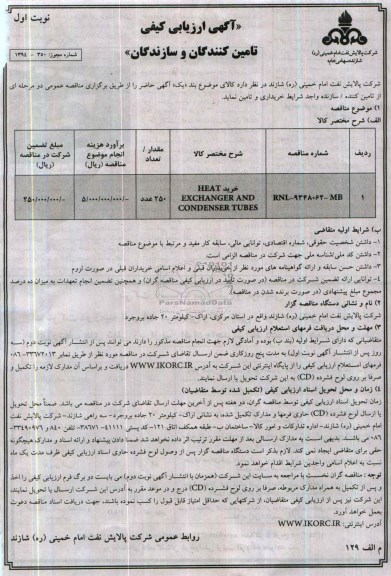 نوبت اول
«آگهی ارزیابی کیفی
تامین کنندگان و سازندگان»
شماره مجوز: ۳۵۰ - ۱۳۹۴
شرکت پالایش نفت امام خمینی (ره)
شازند (سهامی عام)
شرکت پالایش نفت امام خمینی (ره) شازند در نظر دارد کالای موضوع بند «یک» آگهی حاضر را از طریق برگزاری مناقصه عمومی دو مرحله ای
از تامین کننده / سازنده واجد شرایط خریداری و تامین نماید.
۱) موضوع مناقصه
الف) شرح مختصر کالا
ردیف
شماره مناقصه
شرح مختصر کالا
مقدار / تعداد
برآورد هزینه انجام موضوع مناقصه (ریال)
مبلغ تضمین شرکت در مناقصه (ریال)
۱
RNL-۹۳۴۸۰۶۲- MB
خرید HEAT
EXCHANGER AND
CONDENSER TUBES
۲۵۰ عدد
۵/۰۰۰/۰۰۰/۰۰۰/-
۲۵۰/۰۰۰/۰۰۰/-
ب) شرایط اولیه متقاضی
۱- داشتن شخصیت حقوقی، شماره اقتصادی، توانایی مالی، سابقه کار مفید و مرتبط با موضوع مناقصه
۲- داشتن کد ملی/شناسه ملی جهت شرکت در مناقصه الزامی است.
۳- داشتن حسن سابقه و ارائه گواهینامه های مورد نظر از خریداران قبلی و اعلام اسامی خریداران قبلی در صورت لزوم
۴- توانایی ارائه تضمین شرکت در مناقصه (در صورت تأیید در ارزیابی کیفی مناقصه گران) و همچنین تضمین انجام تعهدات به میزان ده درصد
مجموع مبلغ پیشنهادی (در صورت برنده شدن در مناقصه).
۲) نام و نشانی دستگاه مناقصه گزار
شرکت پالایش نفت امام خمینی (ره) شازند واقع در استان مرکزی، اراک- کیلومتر ۲۰ جاده بروجرد
۳) مهلت و محل دریافت فرمهای استعلام ارزیابی کیفی
متقاضیانی که دارای شرایط اولیه (بند ب) بوده و آمادگی لازم جهت انجام مناقصه مذکور را دارند می توانند پس از انتشار آگهی نوبت دوم (سه
روز پس از انتشار آگهی نوبت اول) به مدت پنج روزکاری ضمن ارسال تقاضای شرکت در مناقصه مورد نظر از طریق نمابر
فرمهای استعلام ارزیابی کیفی را از پایگاه اینترنتی این شرکت به آدرس WWW.IKORC.IR دریافت و براساس آن مدارک لازمه را تکمیل و
صرفا بر روی لوح فشرده (CD) به این شرکت تحویل یا ارسال نمایند.
۴) زمان و محل تحویل اسناد ارزیابی کیفی (تکمیل شده توسط متقاضیان)
زمان تحویل اسناد ارزیابی کیفی توسط مناقصه گران، دو هفته پس از آخرین مهلت ارسال تقاضای شرکت در مناقصه می باشد. ضمناً محل تحویل
یا ارسال لوح فشرده (CD) حاوی فرمها و مدارک تکمیل شده، به نشانی اراک- کیلومتر ۲۰ جاده بروجرد- سه راهی شازند- شرکت پالایش نفت
امام خمینی (ره) شازند- اداره تدارکات و امور کالا- ساختمان ب- طبقه همکف اتاق ۱۲۱- کد پستی ۴۱۱۱۱-۳۸۶۷۱
می باشد. بدیهی است به مدارک ارسالی بعد از مهلت مقرر ترتیب اثر داده نخواهد شد ضمنا دادن پیشنهاد و ارائه اسناد و مدارک هیچگونه
حقی برای متقاضی ایجاد نمی کند. لازم بذکر است دستگاه مناقصه گزار پس از وصول لوح فشرده حاوی اسناد ارزیابی کیفی ظرف مدت یک ماه
نسبت به اعلام اسامی واجدین شرایط اقدام خواهد نمود.
توجه: مناقصه گران نخست با مراجعه به سایت این شرکت (همزمان با انتشار آگهی نوبت دوم) می بایست دو برگ فرم ارزیابی کیفی را اخذ
و پس از تکمیل به همراه مدارک مربوطه، صرفا بر روی لوح فشرده (CD) درج و در موعد مقرر به آدرس این شرکت ارسال یا تحویل نمایند.
این شرکت نیز پس از ارزیابی کیفی متقاضیان، از شرکتهایی که حداقل امتیاز قابل قبول را کسب نموده باشند، جهت دریافت اسناد مناقصه دعوت
بعمل خواهد آورد.
آدرس اینترنتی: WWW.IKORC.IR
روابط عمومی شرکت پالایش نفت امام خمینی (ره) شازند
م الف ۱۲۹